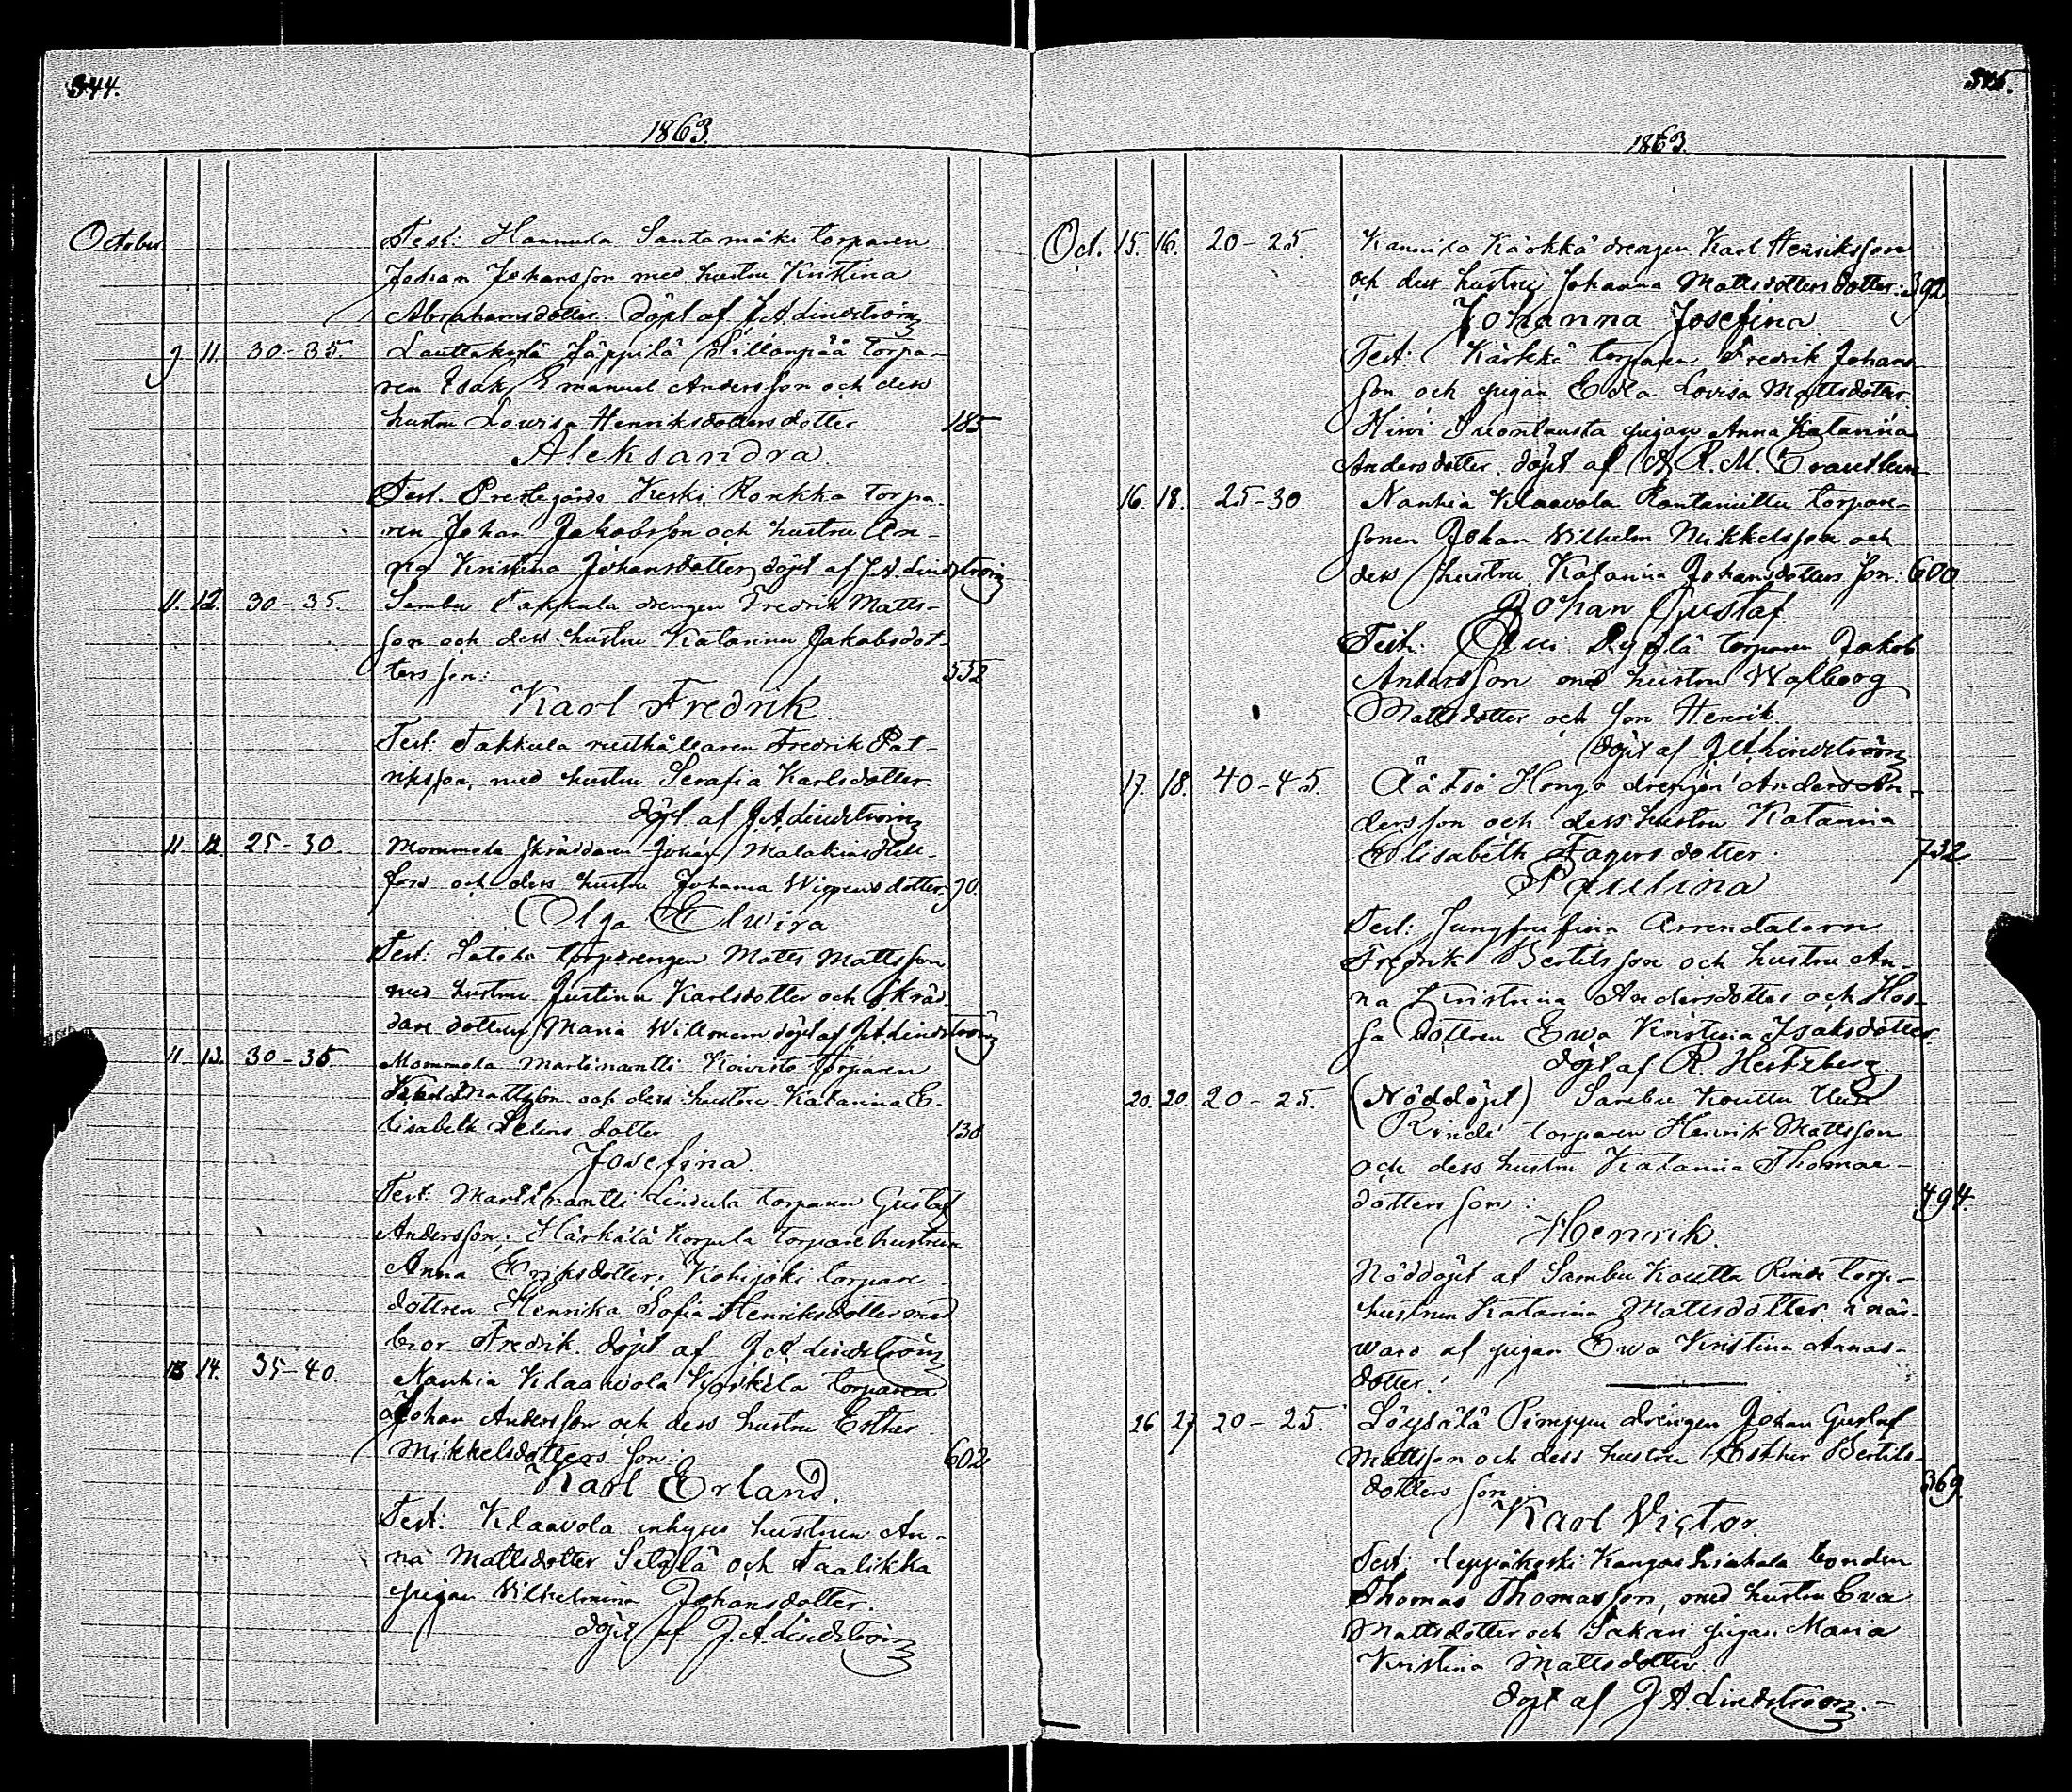 344.
1863.
October.
Test: Hannula Santamäki torparen
Johan Johansson med hustru Kristina
Abrahamsdotter. döpt af J. A. Lindström
9 11. 30-35. Lauttakylä Jäppilä Sillanpää torpa-
ren Isak Emanuel Andersson och dess
hustru Lovisa Henriksdotters dotter 185
Aleksandra.
Test. Prestegårds Keski Ronkka torpa-
ren Johan Jakobsson och hustru An-
na Kristina Johansdotter, döpt af J. A. Lindström
11. 12. 30-35. Sambu Takkula drengen Fredrik Matts-
son och dess hustru Katarina Jakobsdot-
ters son: 552
Karl Fredrik.
Test: Takkula rusthållaren Fredrik Pat-
riksson, med hustru Serafia Karlsdotter.
döpt af J. A. Lindström
11. 12. 25-30. Mommola skräddaren Johan Malakias
och dess hustru Johanna dotter 90.
Olga Elwira
Test: Matts Mattsson
med hustru Justina Karlsdotter och skräd-
dare dottren Maria döpt af J. A. Lindström
11. 13. 30-35 Mommola Martinantti Koivisto torparen
Mattsson och dess hustru Katarina E-
lisabeth dotter 130
Josefina.
Test: Martinantti Lindula torparen Gustaf
Andersson; Härkälä Korpula torpare hustrun
Anna Eriksdotter; Kohijoki torpare-
dottren Henrika Sofia Henriksdotter med
bror Fredrik. döpt af J. A. Lindström
13 14. 35-40. Nanhia Klaavola torparen
Johan Andersson och dess hustru Esther
Mikkelsdotters son: 602
Karl Erland.
Test: Klaavola inhyses hustrun An-
na Mattsdotter Setälä och Taalikka
pigan Wilhelmina Johansdotter.
döpt af J. A. Lindström
345.
1863.
Oct. 15. 16. 20-25 Kärkkä drengen Karl Henriksson
och dess hustru Johanna Mattsdotters dotter: 392
Johanna Josefina
Test: Kärkkä torparen Fredrik Johans-
son och pigan Edla Lovisa Mattsdotter.
Suontausta pigan Anna Katarina
Andersdotter. döpt af
16. 18. 25-30. Nanhia Klaavola torpare-
sonen Johan Wilhelm Mikkelsson och
dess hustru Katarina Johansdotters son: 600
Johan Gustaf.
Test: torparen Jakob
Andersson med hustru Walborg
Mattsdotter och son Henrik.
döpt af J. A. Lindström
17. 18. 40-45. Äätsä Hongo drengen Anders An-
dersson och dess hustru Katarina
Elisabeth Fagers dotter. 732
Paulina
Test: Arrendatorn
Fredrik Bertilsson och hustru An-
na Kristina Andersdotter och Hos-
sa dottren Ewa Kristina Isaksdotter
döpt af R. Hertzberg.
20. 20. 20-25. (Nöddöpt) Sambu Kouttu Uusi
Rinde torparen Henrik Mattsson
och dess hustru Katarina Thomae-
dotters son: 494.
Henrik.
Nöddöpt af Sambu Koutta Rinde torp-
hustrun Katarina Mattsdotter i när-
waro af pigan Ewa Kristina Annas-
dotter.
26 27 20-25. Löysälä Pimppu drengen Johan Gustaf
Mattsson och dess hustru Esther Bertils-
dotters son 369
Karl Victor.
Test: Leppäkoski Kangas bonden
Thomas Thomasson, med hustru Eva
Mattsdotter och Sakari pigan Maria
Kristina Mattsdotter.
döpt af J. A. Lindström.